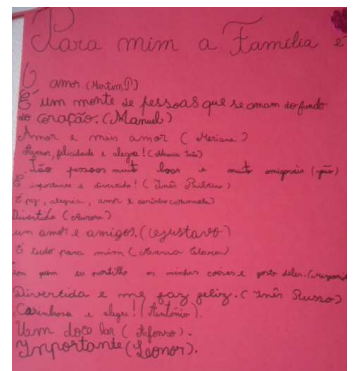 Para mim a Família é
É amor. (Martim P)
É um monte de pessoas que se amam do fundo
do coração. (Manuel)
Amor e mais amor (Mariana)
Amor, felicidade e alegria! (Maria Inês)
São pessoas muito boas e muito amigáveis
É importante e divertido! (Inês
É paz, alegria, amor e carinho
Divertida (Aurora)
um amor e amigos. (Gustavo)
É tudo para mim (Maria
com quem eu partilho as minhas coisas e gosto deles.
Divertida e me faz feliz. (Inês Russo)
Carinhosa e alegre! (António).
Um doce lar (Afonso).
Importante (Leonor).